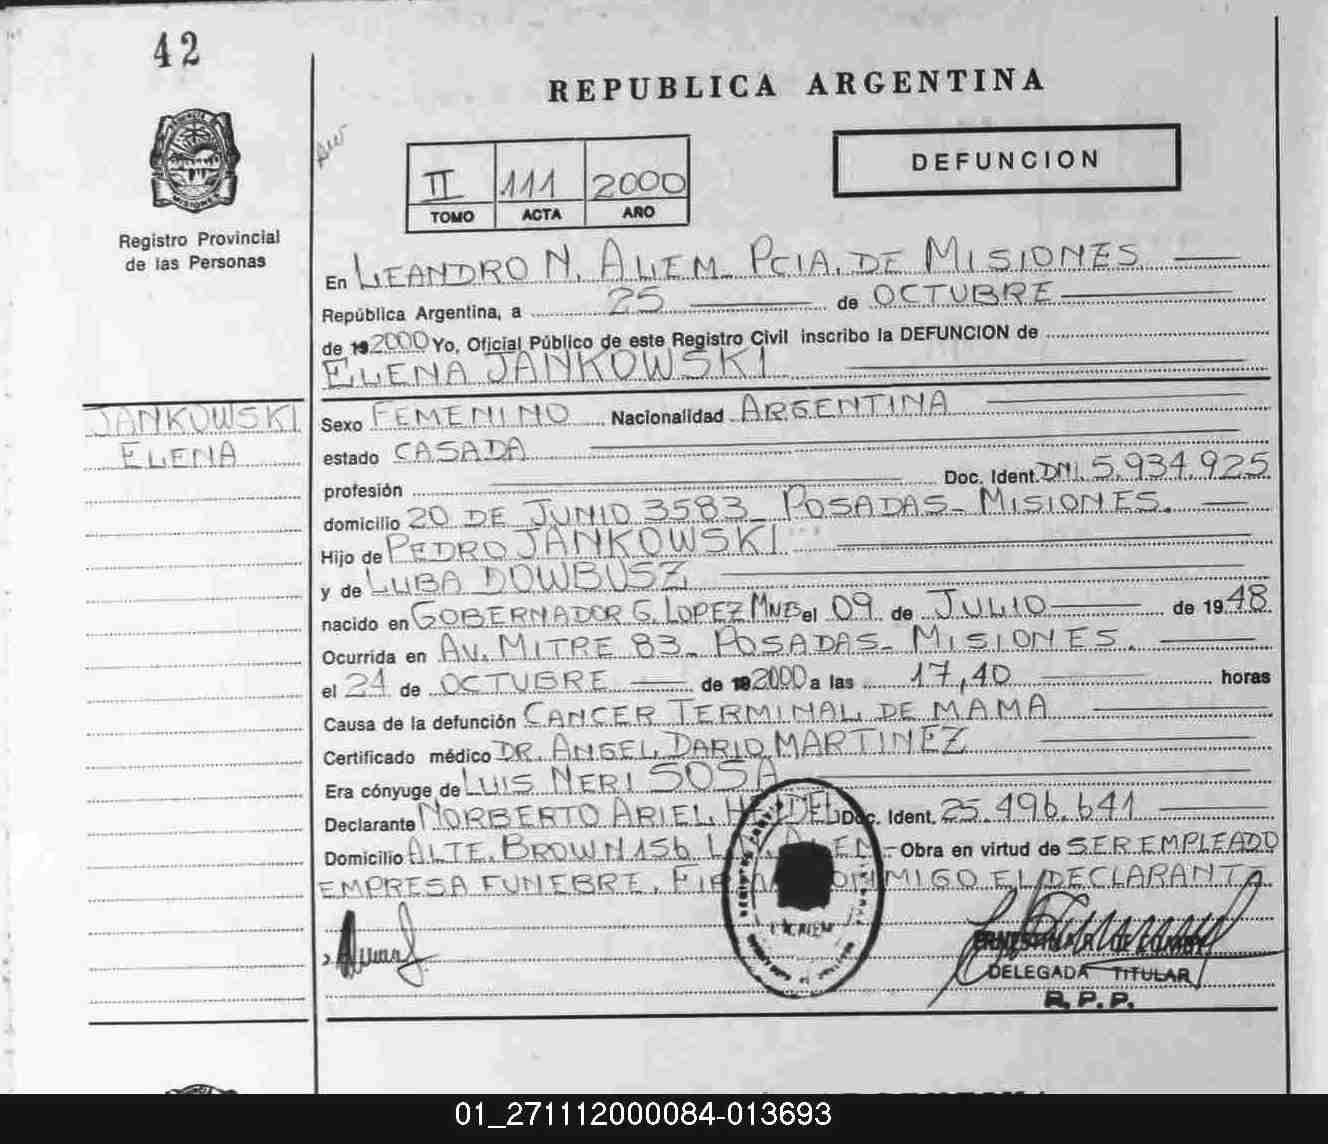 42
REPUBLICA ARGENTINA
DEFUNCION
II 111 2000
TOMO ACTA AÑO
MISIONES
Registro Provincial
de las Personas
En LEANDRO N. ALEM - PCIA. DE MISIONES
República Argentina, a 25 de OCTUBRE
de 19 2000 Yo, Oficial Público de este Registro Civil inscribo la DEFUNCION de
ELENA JANKOWSKI
JANKOWSKI
ELENA
Sexo FEMENINO Nacionalidad ARGENTINA
estado CASADA
profesión Doc. Ident. DNI. 5.934.925
domicilio 20 DE JUNIO 3583 - POSADAS - MISIONES.
Hijo de PEDRO JANKOWSKI
y de LUBA DOWBUSZ
nacido en GOBERNADOR G. LOPEZ MNES el 09 de JULIO de 1948
Ocurrida en AV. MITRE 83 - POSADAS - MISIONES.
el 24 de OCTUBRE de 19 2000 a las 17,40 horas
Causa de la defunción CANCER TERMINAL DE MAMA
Certificado médico DR. ANGEL DARIO MARTINEZ
Era cónyuge de LUIS NERI SOSA
Declarante NORBERTO ARIEL Doc. Ident. 25.496.641
Domicilio ALTE. BROWN 156 L. N. ALEM - Obra en virtud de SER EMPLEADO
EMPRESA FUNEBRE. FIRMA CONMIGO EL DECLARANTE
L. N. ALEM
DELEGADA TITULAR
R. P. P.
01_271112000084-013693